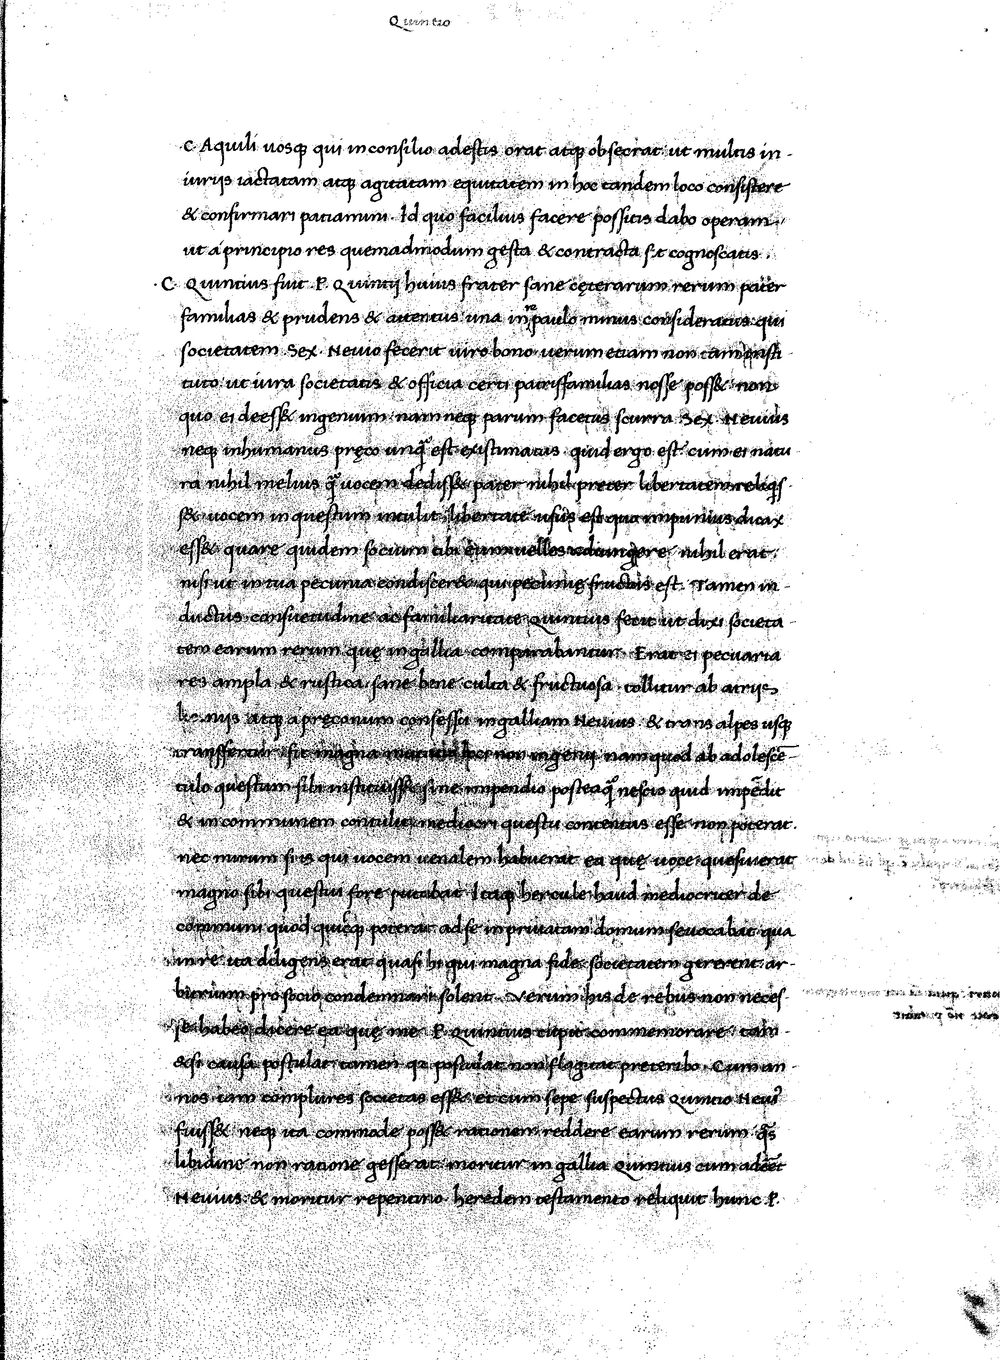 Quintio
C Aquili uosq; qui in consilio adestis orat atq; obsecrat ut multis in-
iurijs iactatam atq; agitatam equitatem in hoc tandem loco consistere
& confirmari patiamini. Id quo facilius facere possitis dabo operam
ut a principio res quemadmodum gesta & contracta sit cognoscatis.
C. Quintius fuit P. Quintij huius frater sane cęterarum rerum pater
familias & prudens & attentus una in re paulo minus consideratus qui
societatem Sex. Neuio fecerit uiro bono uerum etiam non tam insti
tuto ut iura societatis & officia certi patrisfamilias nosse poss& non
quo ei deess& ingenium nam neq; parum facetus scurra Sex. Neuius
neq; inhumanus pręco unq̃ est existimatus. quid ergo est. cum ei natu
ra nihil melius q̃ uocem dediss& pater nihil preter libertatem reliqis
s& uocem in questum intulit libertate usus est quo impunius dicax
ess& quare quidem socium tibi eum uelles adiungere nihil erat
nisi ut in tua pecunia condisceret qui pecunię fructus est. Tamen in-
ductus consuetudine ac familiaritate Quintius fecit ut dixi societa
tem earum rerum quę in gallia comparabantur. Erat ei pecuaria
res ampla & rustica sane bene culta & fructuosa. tollitur ab atrijs
atq; a pręconum confessu in galliam Neuius & trans alpes usq;
transfertur fit magna mutatio loci non ingenij nam quod ab adolescē-
tulo questum sibi instituiss& sine impendio posteaq̃ nescio quid impēdit
& in communem contulit mediocri questu contentus esse non poterat.
nec mirum si is qui uocem uenalem habuerat ea quę uoce quesiuerat
magno sibi questui fore putabat. Itaq; hercule haud mediocriter de
communi quod quicq; poterat ad se in priuatam domum seuocabat qua
in re ita diligens erat quasi hi qui magna fide societatem gererent ar-
bitrium pro socio condemnari solent. Verum his de rebus non neces-
se habeo dicere ea quę me P. Quintius cupit commemorare tam
&si causa postulat tamen qa postulat non flagitat preteribo. Cum an-
nos iam complures societas ess& et cum sepe suspectus Quintio Neui9
fuiss& neq; ita commode poss& rationem reddere earum rerum q̃s
libidine non ratione gesserat moritur in gallia Quintius cum adeēt
Neuius & moritur repentino. heredem testamento reliquit hunc P.